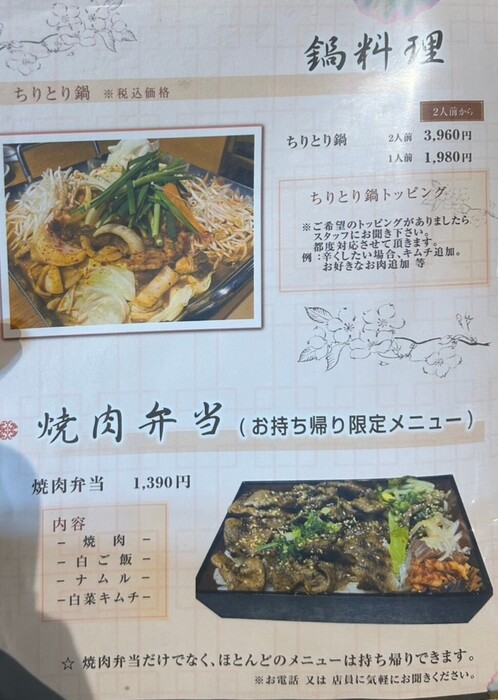 鍋料理
ちりとり鍋 ※税込価格
2人前から
ちりとり鍋 2人前 3,960円
1人前 1,980円
ちりとり鍋トッピング
※ご希望のトッピングがありましたら
スタッフにお聞き下さい。
都度対応させて頂きます。
例：辛くしたい場合、キムチ追加。
お好きなお肉追加 等
焼肉弁当 (お持ち帰り限定メニュー)
焼肉弁当 1,390円
内容
－ 焼 肉 －
－ 白ご飯 －
－ ナムル －
－白菜キムチ－
☆ 焼肉弁当だけでなく、ほとんどのメニューは持ち帰りできます。
※お電話 又は 店員に気軽にお聞きください。